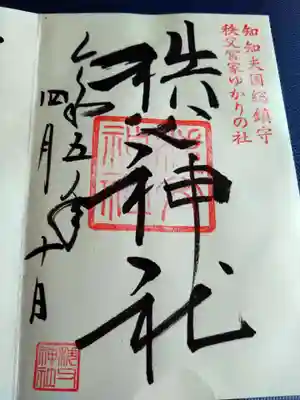 知知夫国総鎮守
秩父宮家ゆかりの社
秩父神社
令和五年
四月十日
秩父
神社